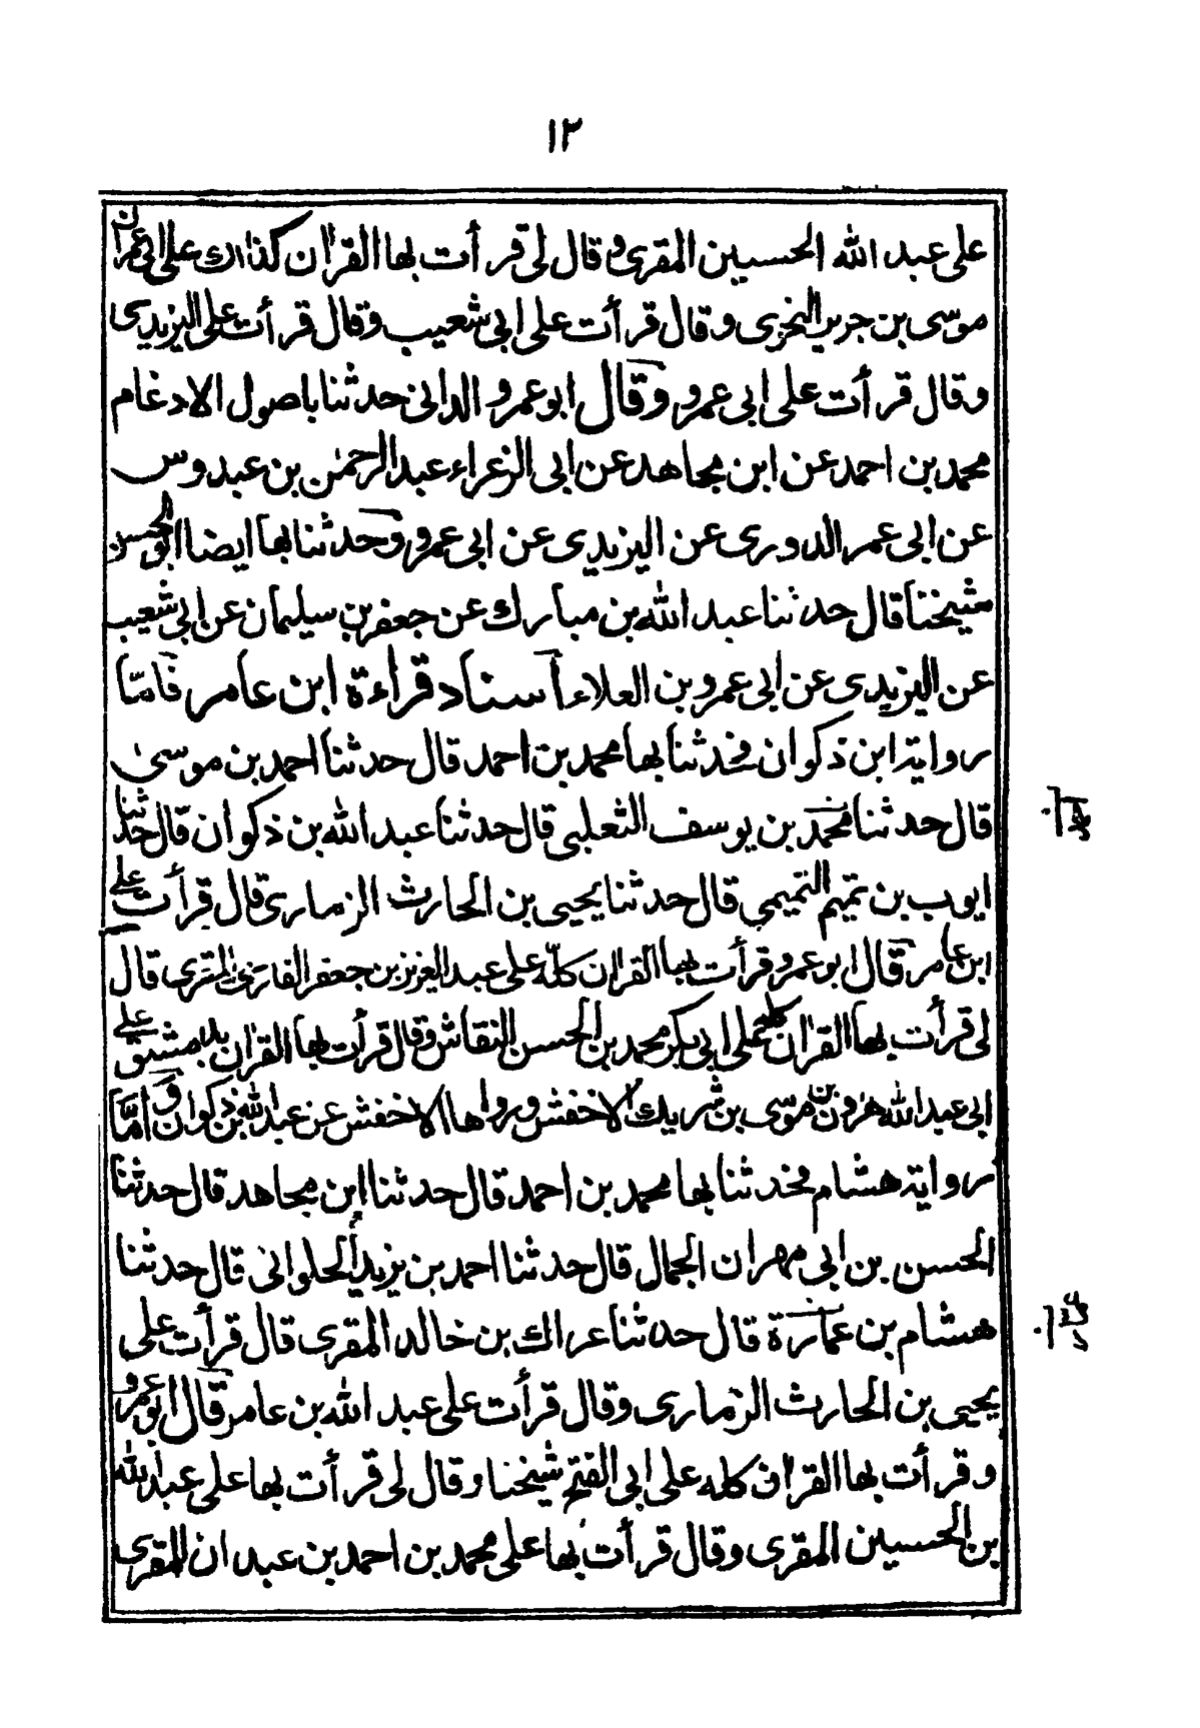 ١٢
على عبد الله الحسين المقرئ وقال لى قرأت بها القران كذالك على ابى عمران
موسى بن جرير النحوى وقال قرأت على ابى شعيب وقال قرأت على اليزيدى
وقال قرأت على ابى عمرو وقال ابو عمرو الدانى حدثنا باصول الادغام
محمد بن احمد عن ابن مجاهد عن ابى الزعراء عبد الرحمٰن بن عبدوس
عن ابى عمر الدورى عن اليزيدى عن ابى عمرو وحدثنا بها ايضا ابو الحسن
شيخنا قال حدثنا عبد الله بن مبارك عن جعفر بن سليمان عن ابى شعيب
عن اليزيدى عن ابى عمرو بن العلاء اسناد قراءة ابن عامر فامّا
رواية ابن ذكوان فحدثنا بها محمد بن احمد قال حدثنا احمد بن موسىٰ
قال حدثنا محمد بن يوسف التعلبى قال حدثنا عبد الله بن ذكوان قال حدثنا
ايوب بن تميم التميمي قال حدثنا يحيى بن الحارث الزمارى قال قرأت على
ابن عامر قال ابو عمرو قرأت بها القران كلّه على عبد العزيز بن جعفر الفارسى المقرى قال
لى قرأت بها القران كله على ابى بكر محمد بن الحسن النقاش وقال قرأت بها القران بدمشق على
ابى عبد الله هٰرون بن موسى بن شريك الاخفش ورواها الاخفش عن عبد الله بن ذكوان وامّا
رواية هشام فحدثنا بها محمد بن احمد قال حدثنا ابن مجاهد قال حدثنا
الحسن بن ابى مهران الجمال قال حدثنا احمد بن يزيد الحلوانى قال حدثنا
هشام بن عمارة قال حدثنا عراك بن خالد المقرى قال قرأت على
يحيى بن الحارث الزمارى وقال قرأت على عبد الله بن عامر قال ابو عمرو
وقرأت بها القران كله على ابى الفتح شيخنا وقال لى قرأت بها على عبد الله
بن الحسين المقرى وقال قرأت بها على محمد بن احمد بن عبدان المقرى